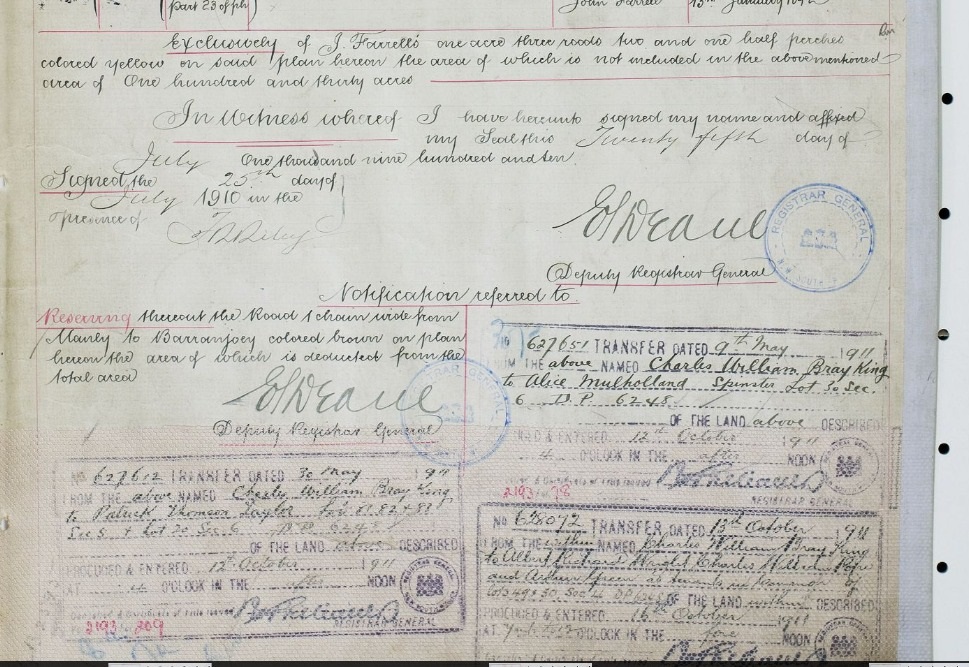 part 23 of ph
John Farrell
13th January 1842
Exclusively of J. Farrell's one acre three roods two and one half perches
colored yellow on said plan hereon the area of which is not included in the abovementioned
area of One hundred and thirty acres
In Witness whereof I have hereunto signed my name and affixed
my Seal this Twenty fifth day of
July One thousand nine hundred and ten.
Signed the 25th day of
July 1910 in the
presence of
Deputy Registrar General
REGISTRAR GENERAL
Notification referred to.
Reserving thereout the Road 1 chain wide from
Manly to Barranjoey colored brown on plan
hereon the area of which is deducted from the
total area
Deputy Registrar General
No 627651 TRANSFER DATED 9th May 1911
FROM THE above NAMED Charles William Bray King
to Alice Mulholland Spinster Lot 30 Sec.
6 D.P. 6248
OF THE LAND above DESCRIBED
PRODUCED & ENTERED 12th October 1911
4 O'CLOCK IN THE after NOON
REGISTRAR GENERAL
No 627612 TRANSFER DATED 30 May 1911
FROM THE above NAMED William Bray King
to Patrick Thomson Taylor Lots 81.82 & 83
Sec 5 & Lot 20 Sec. 6 D.P. 6248
OF THE LAND above DESCRIBED
PRODUCED & ENTERED 12th October 1911
AT 4 O'CLOCK IN THE after NOON
REGISTRAR GENERAL
2193 209
2193 78
No 628092 TRANSFER DATED 13th October 1911
FROM THE within NAMED Charles William Bray King
to Albert Richard Wright Charles William
and Arthur as tenants in common of
Lots 49 & 50 Sec 4 OF THE LAND within DESCRIBED
PRODUCED & ENTERED 16th October 1911
AT O'CLOCK IN THE fore NOON